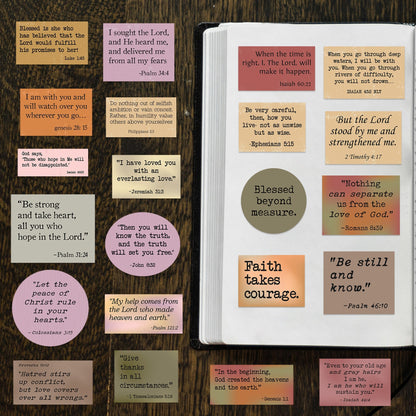 Blessed is she who
has believed that the
Lord would fulfill
his promises to her!
Luke 1:45
I sought the Lord,
and He heard me,
and delivered me
from all my fears
-Psalm 34:4
I am with you and
will watch over you
wherever you go...
genesis 28: 15
Do nothing out of selfish
ambition or vain conceit.
Rather, in humility value
others above yourselves
Philippians 2:3
God says,
'Those who hope in Me will
not be disappointed.'
"I have loved you
with an
everlasting love."
-Jeremiah 31:3
"Be strong
and take heart,
all you who
hope in the Lord."
-Psalm 31:24
"Then you will
know the truth,
and the truth
will set you free."
-John 8:32
"Let the
peace of
Christ rule
in your
hearts."
-Colossians 3:15
"My help comes from
the Lord who made
heaven and earth."
-Psalm 121:2
Proverbs 10:12
"Hatred stirs
up conflict,
but love covers
over all wrongs."
"Give
thanks
in all
circumstances."
-1 Thessalonians 5:18
When the time is
right, I, The Lord, will
make it happen.
Isaiah 60:22
When you go through deep
waters, I will be with you.
When you go through
rivers of difficulty,
you will not drown...
ISAIAH 43:2 NLT
Be very careful,
then, how you
live- not as unwise
but as wise.
-Ephesians 5:15
But the Lord
stood by me and
strengthened me.
2 Timothy 4:17
Blessed
beyond
measure.
"Nothing
can separate
us from the
love of God."
-Romans 8:39
Faith
takes
courage.
"Be still
and
know."
-Psalm 46:10
"In the beginning,
God created the heavens
and the earth."
-Genesis 1:1
"Even to your old age
and gray hairs
I am he,
I am he who will
sustain you."
-Isaiah 46:4